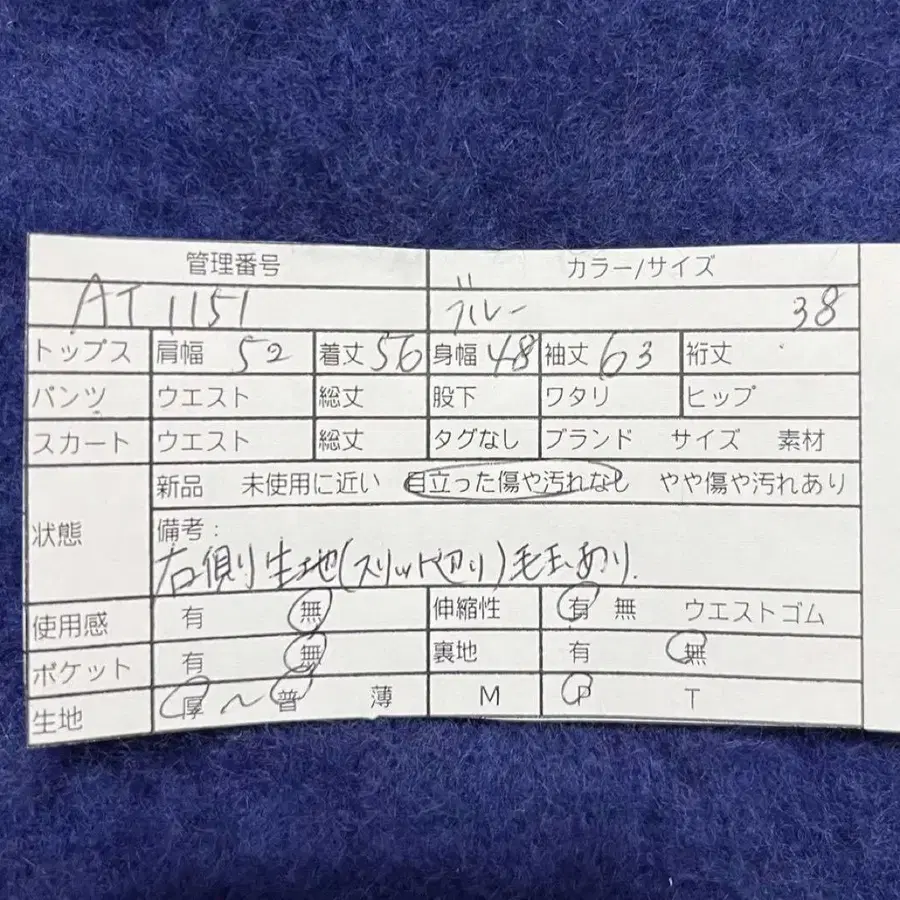 管理番号 カラー/サイズ
AT 1151 ブルー 38
トップス 肩幅 52 着丈 56 身幅 48 袖丈 63 裄丈
パンツ ウエスト 総丈 股下 ワタリ ヒップ
スカート ウエスト 総丈 タグなし ブランド サイズ 素材
状態 新品 未使用に近い 目立った傷や汚れなし やや傷や汚れあり
備考:
右側生地(スリット切り)毛玉あり.
使用感 有 無 伸縮性 有 無 ウエストゴム
ポケット 有 無 裏地 有 無
生地 厚 〜 普 薄 M P T